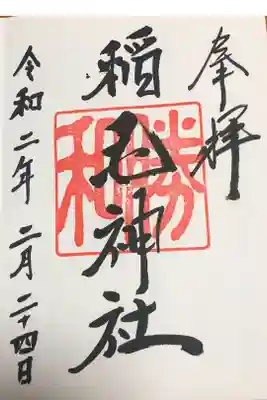 奉拝
稲毛神社
勝和
令和二年二月二十四日